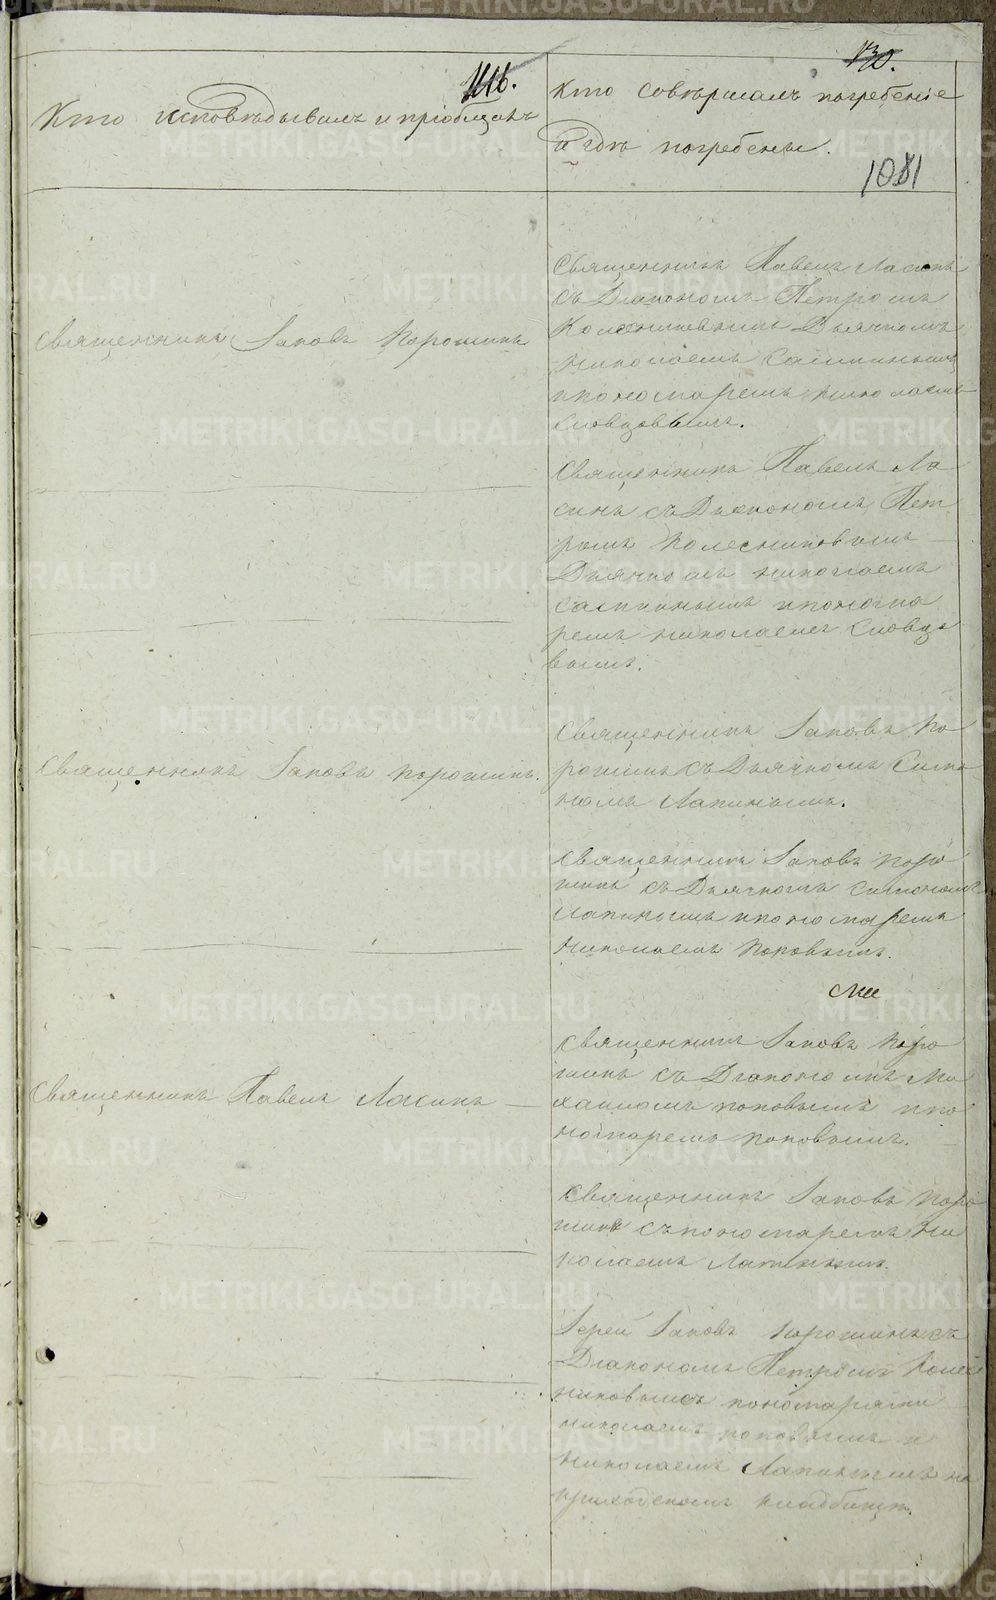 1116.
130.
1081
Кто исповѣдывалъ и пріобщалъ
Кто совершалъ погребеніе
и гдѣ погребены.
Священникъ Іаковъ Порошинъ
Священникъ Павелъ Ляпинъ
съ Діакономъ Петромъ
Колесниковымъ Дьячкомъ
Николаемъ
пономаремъ Николаемъ
Словцовымъ.
Священникъ Павелъ Ля
пинъ съ Діакономъ Пет
ромъ Колесниковымъ
Дьячкомъ Николаемъ
понома
ремъ Николаемъ Словцо
вымъ.
Священникъ Іаковъ Порошинъ.
Священникъ Іаковъ По
рошинъ съ Дьячкомъ Симо
номъ Лапинымъ.
Священникъ Іаковъ Поро
шинъ съ Дьячкомъ Симономъ
Лапинымъ пономаремъ
Николаемъ Поповымъ.
Ми
Священникъ Павелъ Ляпинъ
Священникъ Іаковъ Поро
шинъ съ Діакономъ Ми
хаиломъ Поповымъ и по
номаремъ Поповымъ.
Священникъ Іаковъ Поро
шинъ съ пономаремъ Ни
колаемъ Лапинымъ.
Іерей Іаковъ Порошинъ съ
Діакономъ Петромъ Колес
никовымъ пономарями
Николаемъ Поповымъ и
Николаемъ Лапинымъ на
приходскомъ кладбищѣ.
METRIKI.GASO-URAL.RU